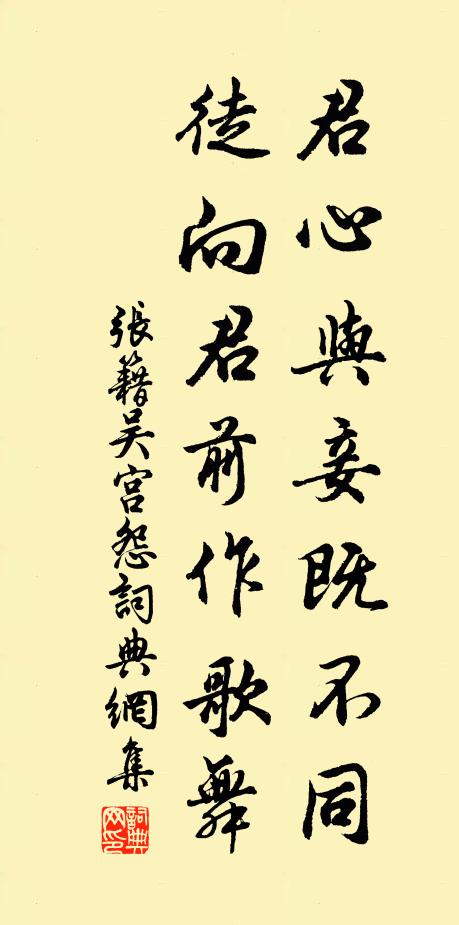 君心與妾既不同
徒向君前作歌舞
張籍吴宫怨詞典網集
詞典网印